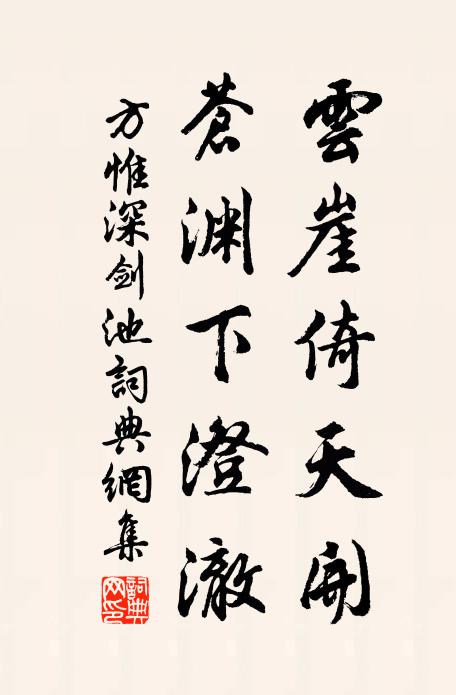 雲崖倚天開
蒼淵下澄澈
方惟深劍池詞典網集
詞典网印